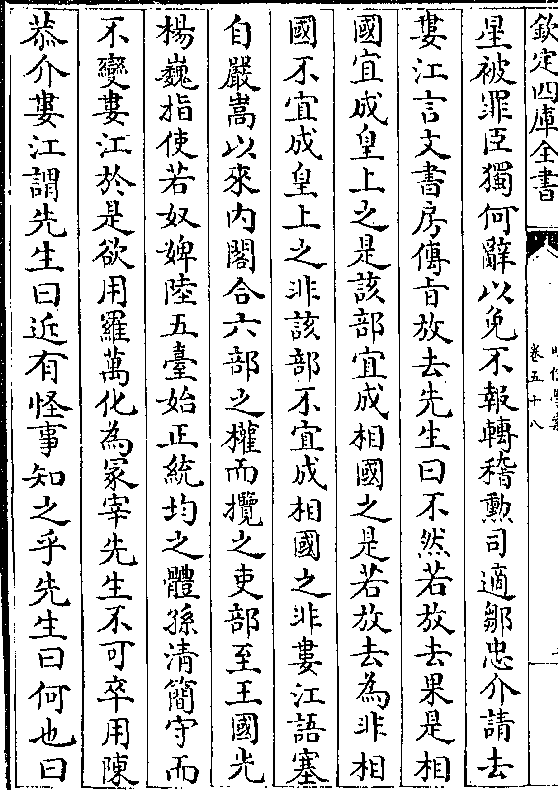 欽定四庫全書
卷五十八
星被罪臣獨何辭以免不報轉稽勲司適鄒忠介請去
婁江言文書房傳㫖放去先生曰不然若放去果是相
國宜成皇上之是該部宜成相國之是若放去為非相
國不宜成皇上之非該部不宜成相國之非婁江語塞
自嚴嵩以來内閣合六部之權而攬之吏部至王國光
楊巍指使若奴婢陸五臺始正統均之體孫清簡守而
不變婁江於是欲用羅萬化為冢宰先生不可卒用陳
恭介婁江謂先生曰近有怪事知之乎先生曰何也曰